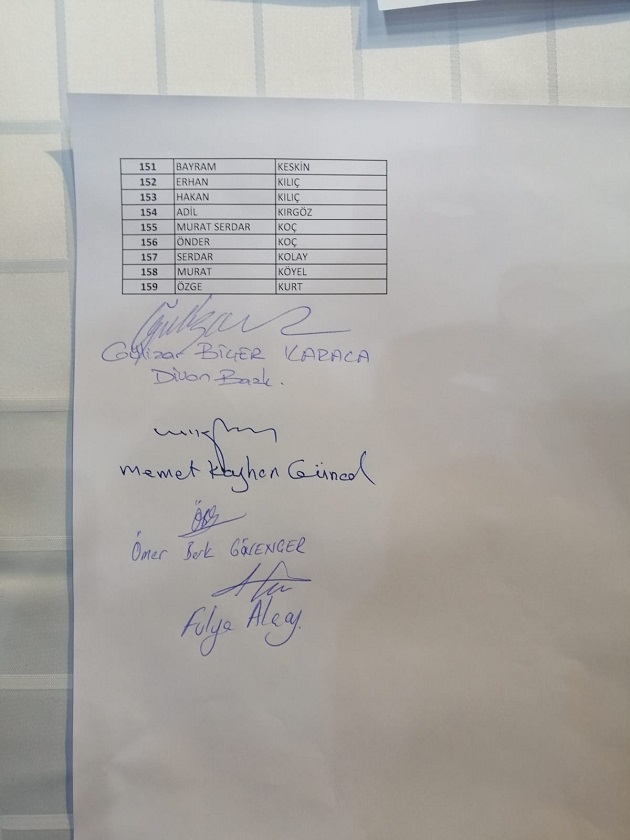 151 BAYRAM KESKİN
152 ERHAN KILIÇ
153 HAKAN KILIÇ
154 ADİL KIRGÖZ
155 MURAT SERDAR KOÇ
156 ÖNDER KOÇ
157 SERDAR KOLAY
158 MURAT KÖYEL
159 ÖZGE KURT
Gülizar BİÇER KARACA
Divan Bask.
Memet Kayhan
Ömer Berk
Fulya